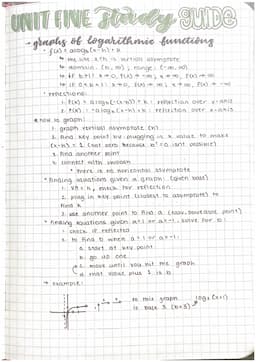 UNIT FIVE study GUIDE
- graphs of logarithmic functions
• f(x) = a logb(x-h) + k
↳ the line x=h is vertical asymptote
↳ domain: (h, ∞), range: (-∞, ∞)
↳ if b>1: x→0, f(x) → -∞; x→∞, f(x) → ∞
↳ if 0<b<1: x→0, f(x) → ∞; x→∞, f(x) → -∞
• reflections:
1. f(x) = a logb(-(x-h)) + k : reflection over y-axis
2. f(x) = -a logb(x-h) + k : reflection over x-axis
how to graph:
1. graph vertical asymptote (h)
2. find key point by plugging in x value to make
(x-h) = 1 (not zero because is not possible)
3. find another point
4. connect with
* there is no horizontal asymptote
• finding equations given a graph: (given base)
1. VA = h, check for reflection
2. plug in key point (closest to asymptote) to
find k
3. use another point to find a (easy, base point)
• finding equations given a=1 or a=-1, solve for b:
1. check if reflected
2. to find b when a=1 or a=-1:
a. start at key point
b. go up one
c. move until you hit the graph
d. that value plus 1 is b
→ example:
to this graph
is base 3 (b=3)
log3(x+1)